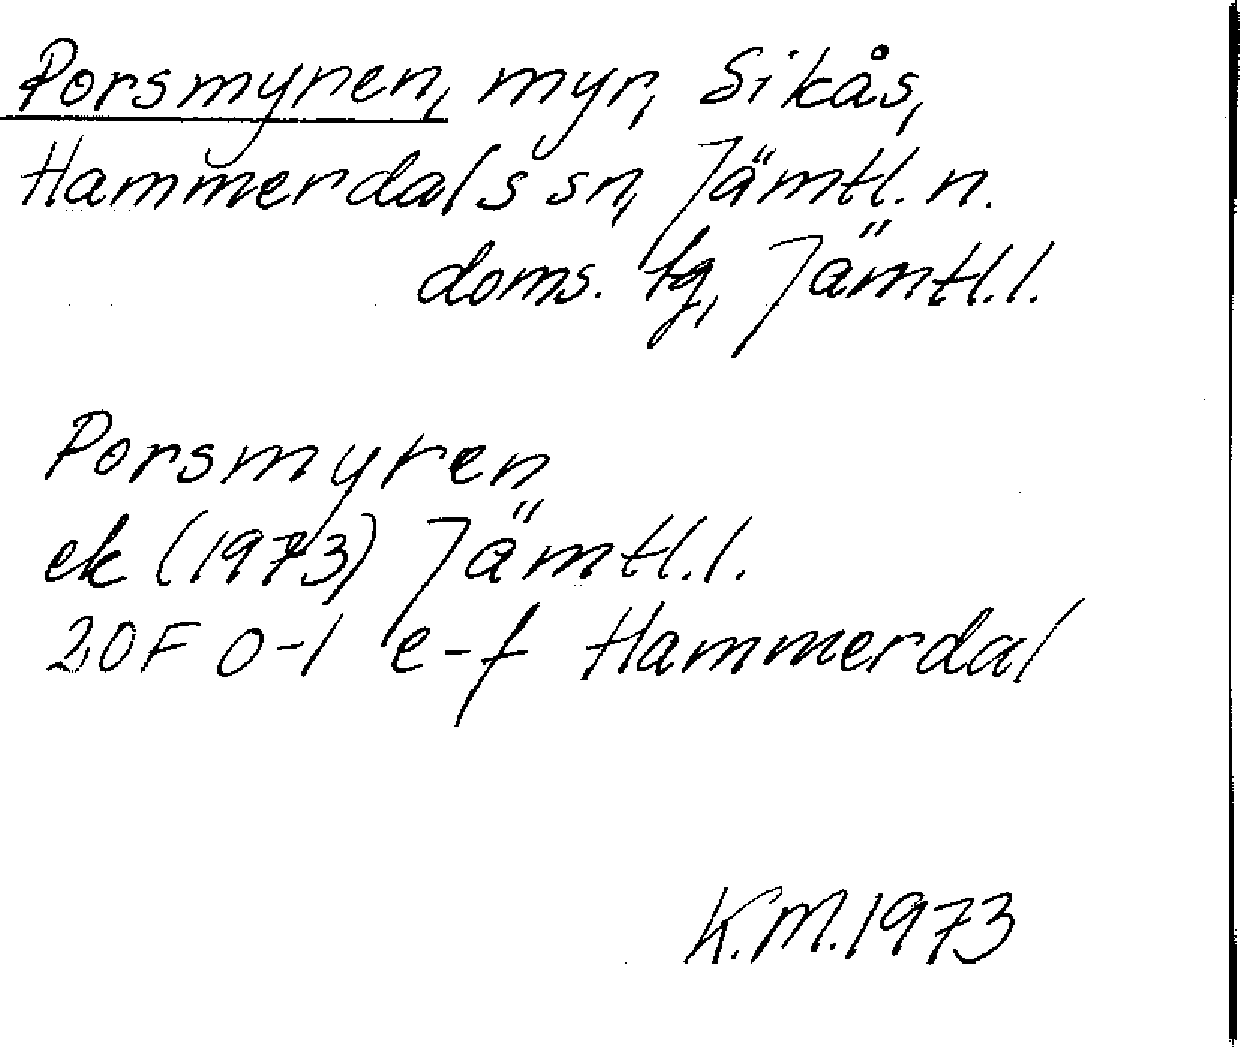 Porsmyren, myr, Sikås,
Hammerdals sn, Jämtl. n.
doms. tg, Jämtl.l.
Porsmyren
ek (1973) Jämtl.l.
20F 0-1 e-f Hammerdal
K.M.1973